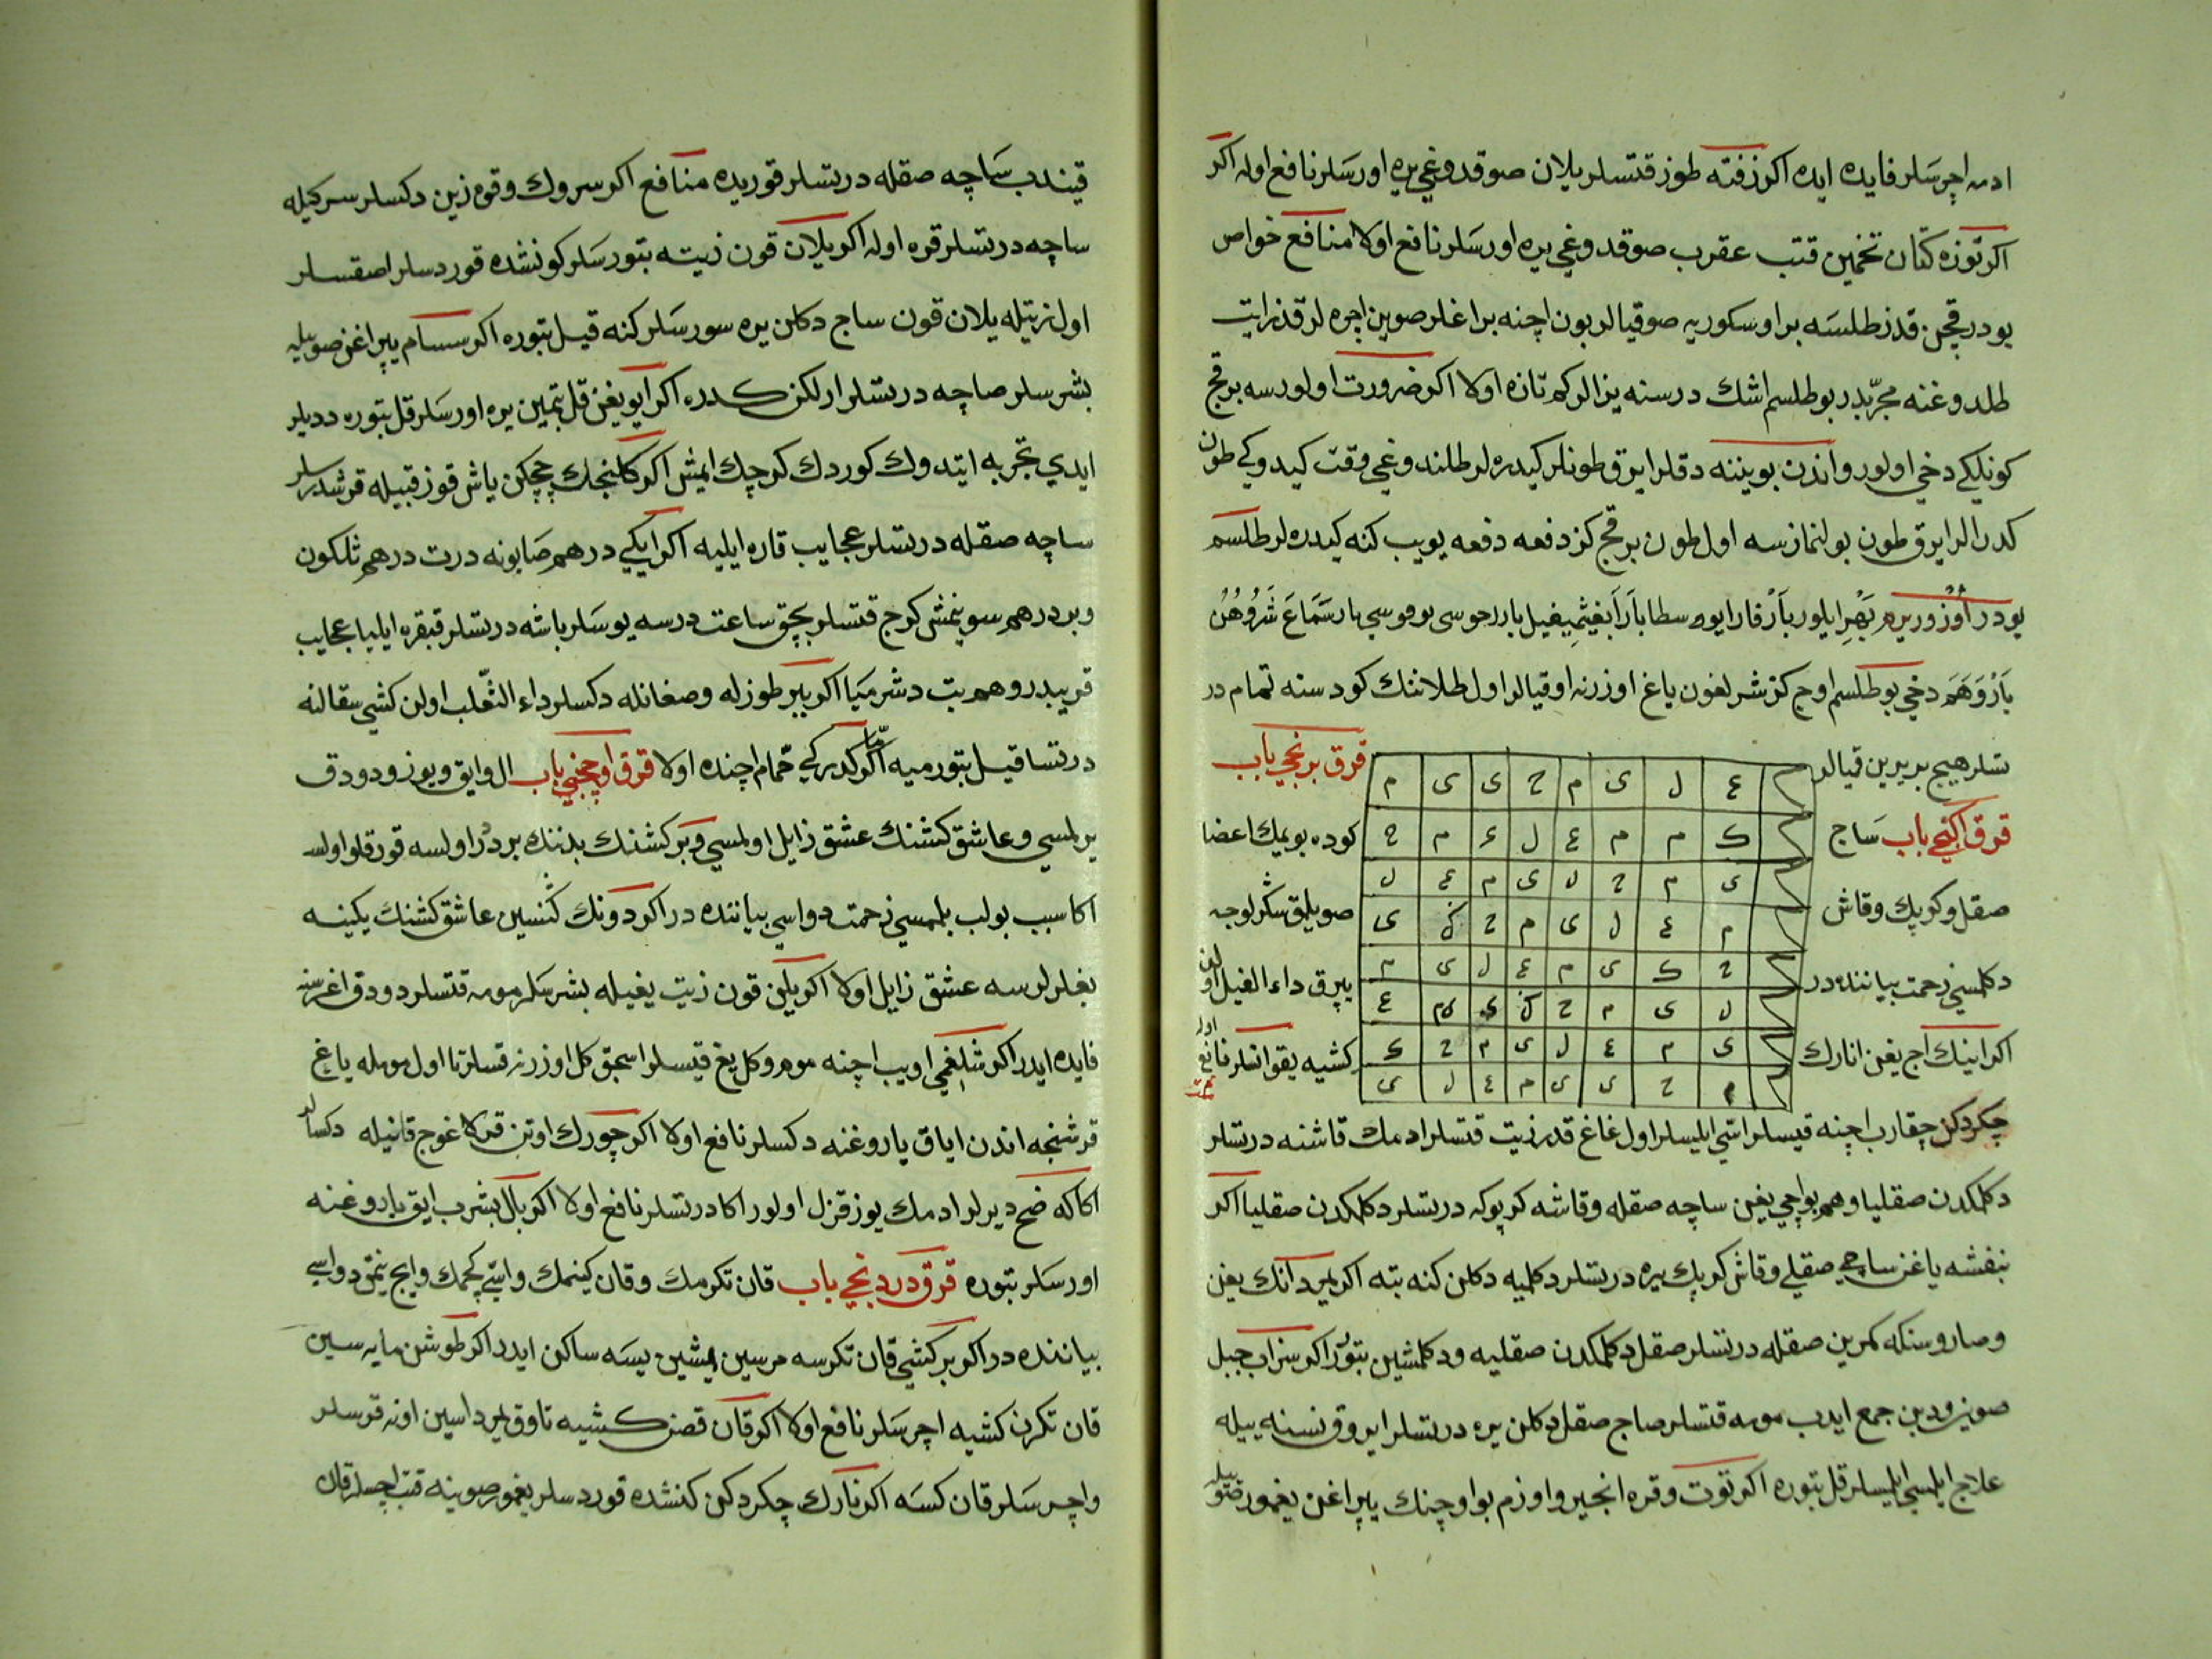 ادمه اچرسلر فایده ایده اکر زفته طوز قتسلر ییلان صوقدوغی یره اورسلر نافع اوله اکر
اکر توزه کتان تخمین قتب عقرب صوقدوغی یره اورسلر نافع اولا منافع خواص
بودر قچن قدز طلسه بر اوسکوریه صو قیالر بون اچنه براغلر صوین اچره لر قدز ایت
طلدوغنه مجربدر بو طلسم اشك درسنه یزالر کم تازه اولا اکر ضرورت اولورسه بر قچ
کونلکی دخی اولور واندن بویننه دقلر ایرق طونلر کیدره لر طلندوغی وقت کیدوکی طون
کدرالر ایرق طون بولنمازسه اول طون بر قچ کز دفعه دفعه یویب کنه کیدره لر طلسم
بودر
بازوهم دخی بو طلسم اوچ کز شیرلغون یاغ اوزرنه اوقیالر اول طلانئك کودسنه تمام در
تسلر هیچ بر یرین قیالر
قرق برنجی باب
م ی ی ح م ی ل ع
قرق اکنجی باب ساج
کوده بویمك اعضا
ح م ع ل ع م م ك
صقل و کرپك وقاش
صویلمق شکرلوجه
ل ع م ی ل ح م ی
ی ك ح م ی ل ع م
دکلمسی زحمت بیاننده در
یپرق داء الفیل اولن
م ی ل ع م ی ك ح
ع م ی ك ح م ی ل
اکر اینك اج یغن انارك
کشیه یقو اتسلر نافع اولا
ك ح م ی ل ع م ی
ی ل ع م ی ی ح م
چکردکن چقارب اچنه قیسلر اسی ایلیسلر اول غاغ قدر زیت قتسلر ادمك قاشنه درتسلر
دکلمکدن صقلیا وهم بواچی یغن ساچه صقله وقاشه کرپوکه درتسلر دکلمکدن صقلیا اکر
بنفشه یاغن ساچی صقلی وقاش کرپك یره درتسلر دکلمیه دکلن کنه بته اکر یمردانك یغن
وصاروسنکه کمرین صقله درتسلر صقل دکلمکدن صقلیه ودکلمشین بتورر اکر سزاب جبل
صوینی ودبن جمع ایدب مومه قتسلر صاج صقل دکلن یره درتسلر ایروق نسنه ییله
علاج ایلمسی ایلیسلر قل بتوره اکر توت وقره انجیر واوزم بو اوچنك یپراغن یغمور صویله
قیندب ساچه صقله درتسلر قوریده منافع اکر سروك وقوه زین دکسلر سرکیله
ساچه درتسلر قره اوله اکر ییلان قون زیته بتورسلر کونشده قوردسلر اصقسلر
اول زیتله ییلان قون ساج دکلن یره سورسلر کنه قیل بتوره اکر سسام یپراغن صوییله
بشرسلر صاچه درتسلر ارلکن کدره اکر ایو یغن قل بتمین یره اورسلر قل بتوره ددیلر
ایدی تجربه ایتدوك کوردك کرچك ایمش اکر کلنجك چچکن یاش قوز قبیله قرشدرسلر
ساچه صقله درتسلر عجایب قاره ایلیه اکر ایکی درهم صابونه درت درهم ثلکون
وبر درهم سوینمش کرج قتسلر بچق ساعت درسه یوسلر باشه درتسلر قبقره ایلیا عجایب
قریبدر وهم بت دشرمیا اکر بیر طوزله وصغانله دکسلر داء الثعلب اولن کشی سقالنه
درتسا قیل بتورمیه اما اکر کدرکی حمام اچنده اولا قرق اوچنجی باب ال وایق ویوز ودودق
یرلمسی وعاشق کشنك عشق زایل اولمسی وبر کشنك بدننده بر درد اولسه قورقلو اولسه
اکا سبب بولب بلمسی زحمت دواسی بیاننده در اکر دونك کنسین عاشق کشنك یکینه
بغلرلرسه عشق زایل اولا اکر ییلن قون زیت یغیله بشرسلر مومه قتسلر دودق اغرسنه
فایده ایدر اکر شلغمی اویب اچنه موم وکل یغ قیسلر اسجق کل اوزرنه قسلر تا اول مومله یاغ
قرشنجه اندن ایاق یاروغنه دکسلر نافع اولا اکر چورك اوتن قره اغوج قانیله دکسالر
اکا که ضح دیرلر ادمك یوز قزل اولور اکا درتسلر نافع اولا اکر بال بشرب ایق یاروغنه
اورسلر بتوره قرق دردنجی باب قان تکرمك وقان کینمك واتی کچمك وایچ ینمق دواسی
بیاننده در اکر بر کشی قان تکرسه مرسین یمشین یسه ساکن ایدر اکر طوشن مایه سین
قان تکرن کشیه اچرسلر نافع اولا اکر قان قصن کشیه تاوق یمرداسین اونه قرسلر
واچرسلر قان کسه اکر نارك چکردکن کنشده قوردسلر یغمور صوینه قتب اچسلر قان